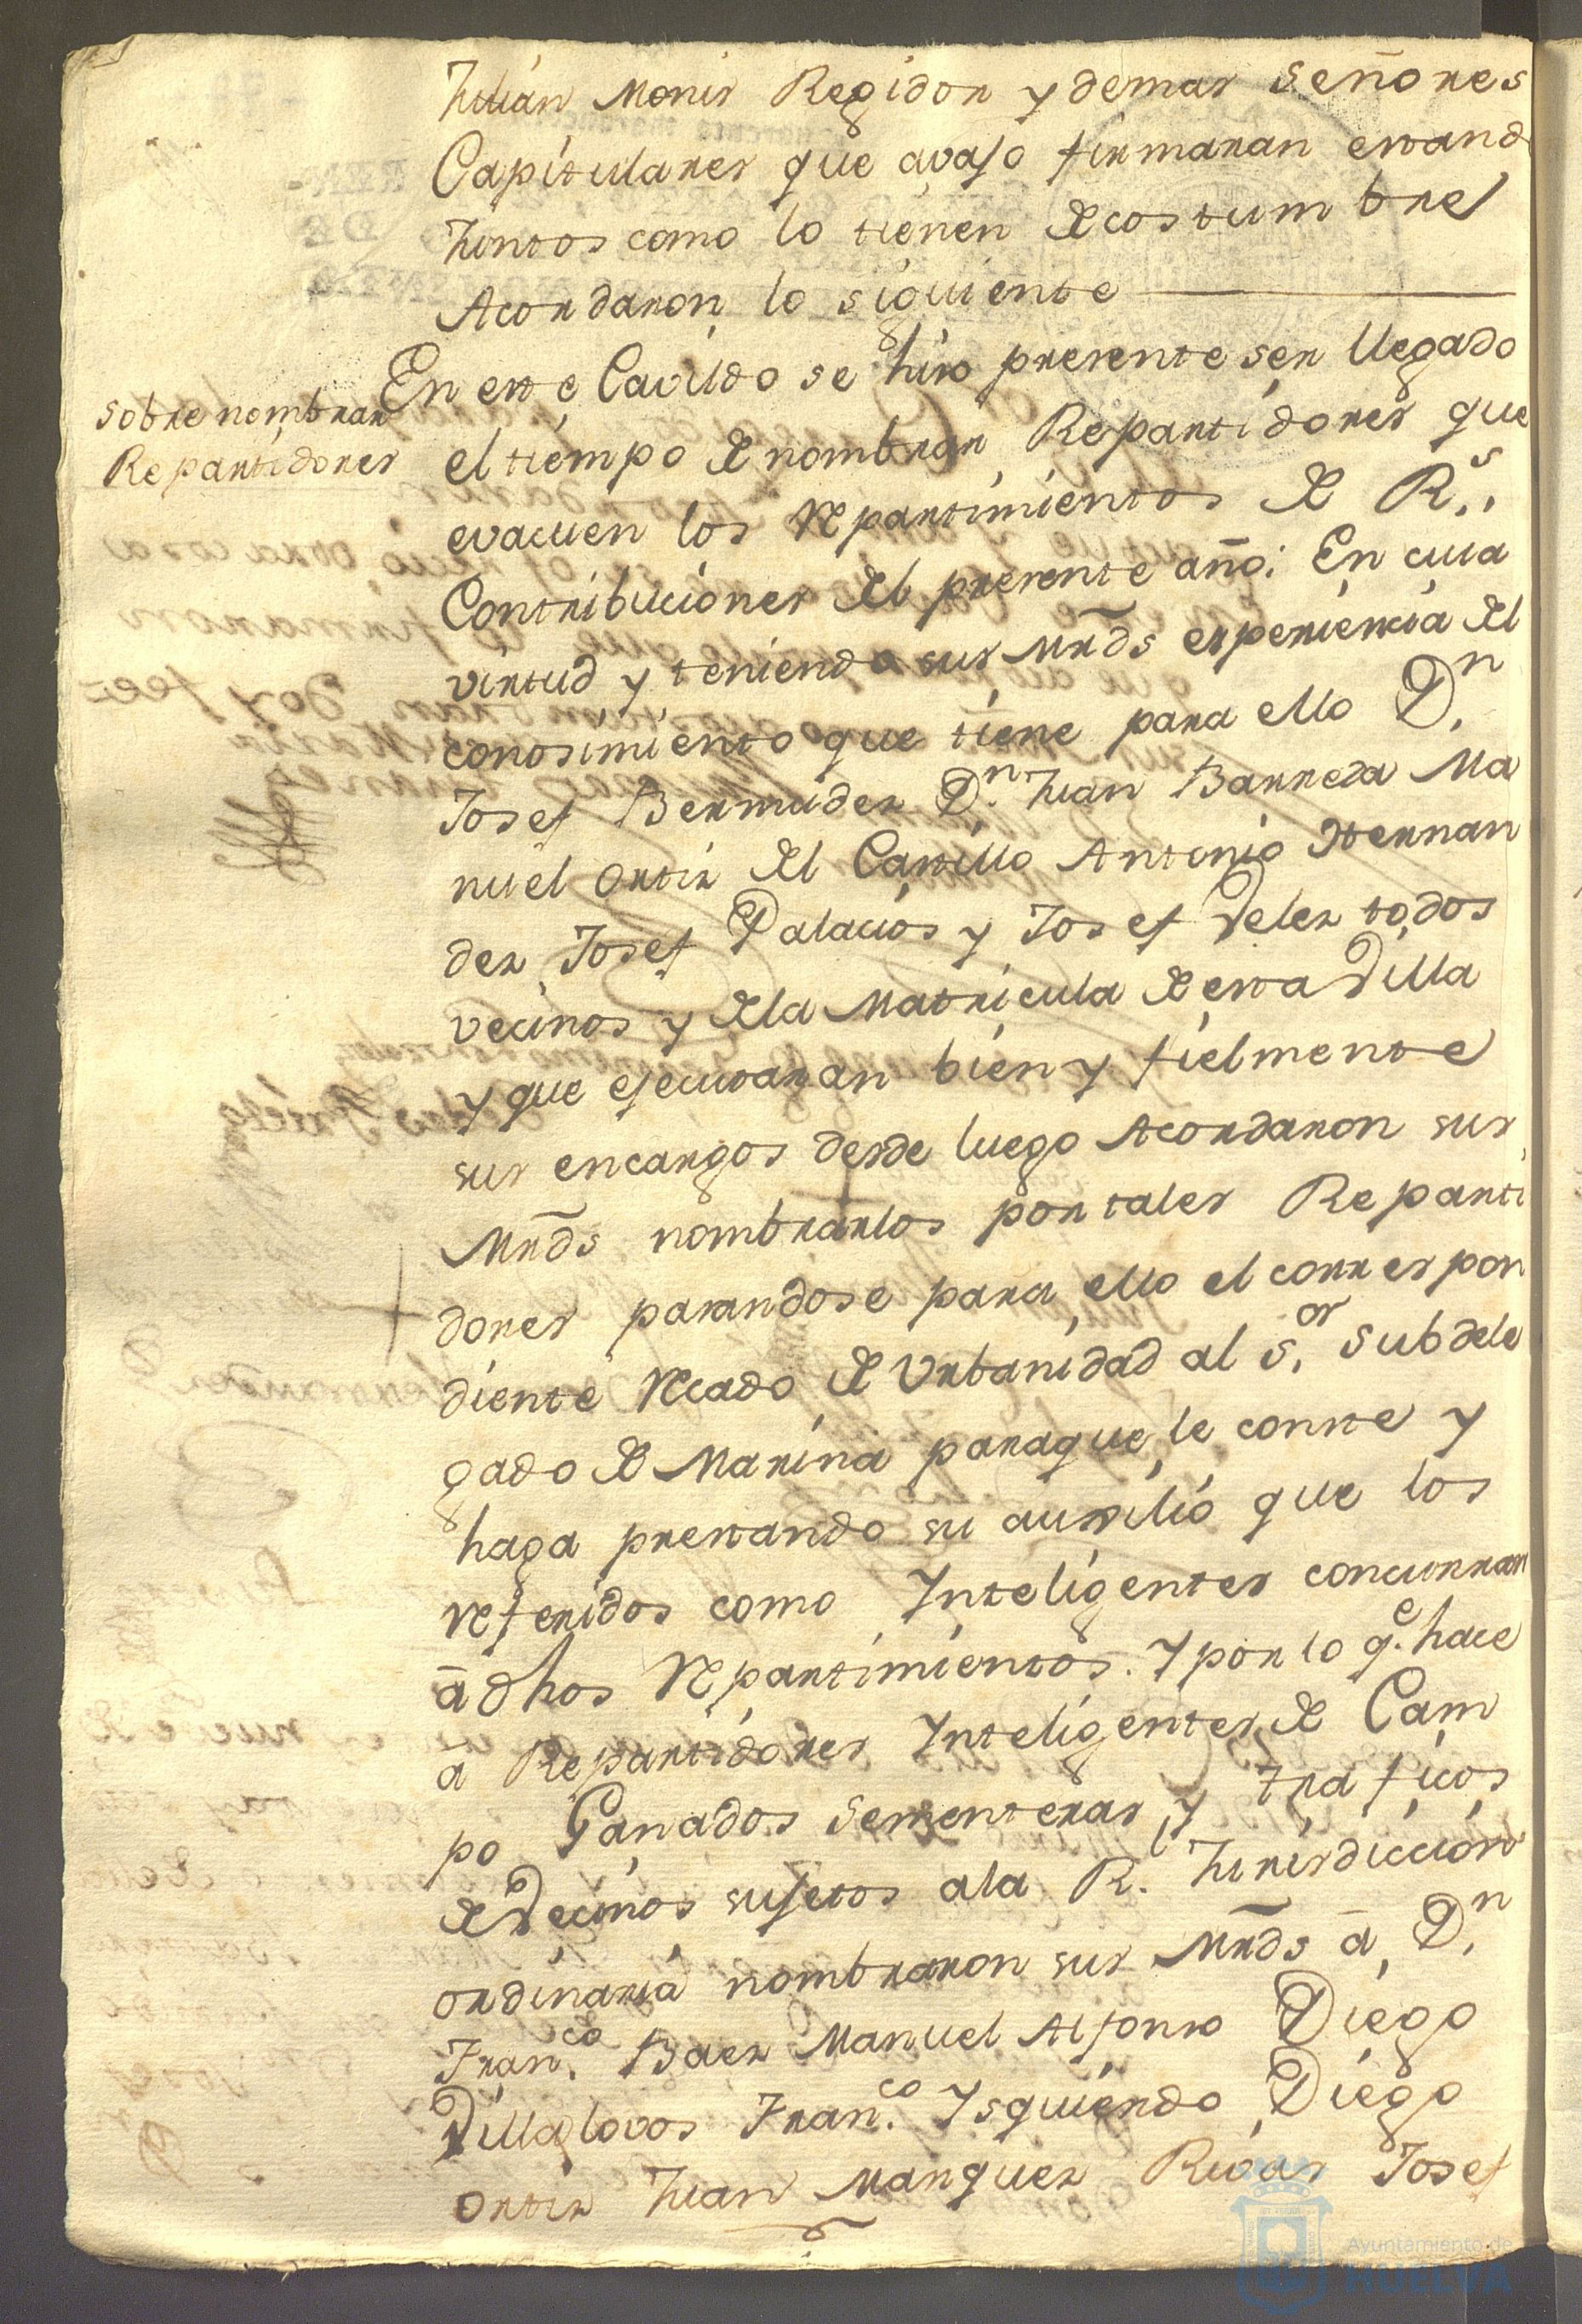 Julian Monis Regidor y demas Señores
Capitulares que avajo firmaran estand
Juntos como lo tienen de costumbre
Acordaron lo siguiente
En este Cavildo se hizo presente ser llegado
sobre nombrar
Repartidores
el tiempo de nombrar Repartidores que
evacuen los repartimientos de R.s
Contribuciones del presente año: En cuia
virtud y teniendo sus Mrds esperiencia del
conosimiento que tiene para ello D.n
Josef Bermudez D.n Juan Barreda Ma
nuel Ortiz del Castillo Antonio Hernan
dez Josef Palacios y Josef Velez todos
vecinos y dela Matricula de esta Villa
y que ejecutaran bien y fielmente
sus encargos desde luego Acordaron sus
Mrds nombrarlos por tales Reparti
dores pasandose para ello el correspon
diente recado de Urbanidad al s.or Subdele
gado de Marina paraque le conste y
haga prestando su auxilio que los
referidos como Inteligentes concurran
á dhos repartimientos. Y por lo q.e hace
á Repartidores Inteligentes de Cam
po Ganados sementeras y traficos
de Vecinos sujetos ala R.l Jurisdiccion
ordinaria nombraron sus Mrds á D.n
Fran.co Baez Manuel Alfonso Diego
Villalovos Fran.co Ysquierdo Diego
Ortiz Juan Marquez Rivas Josef
Ayuntamiento de
HUELVA